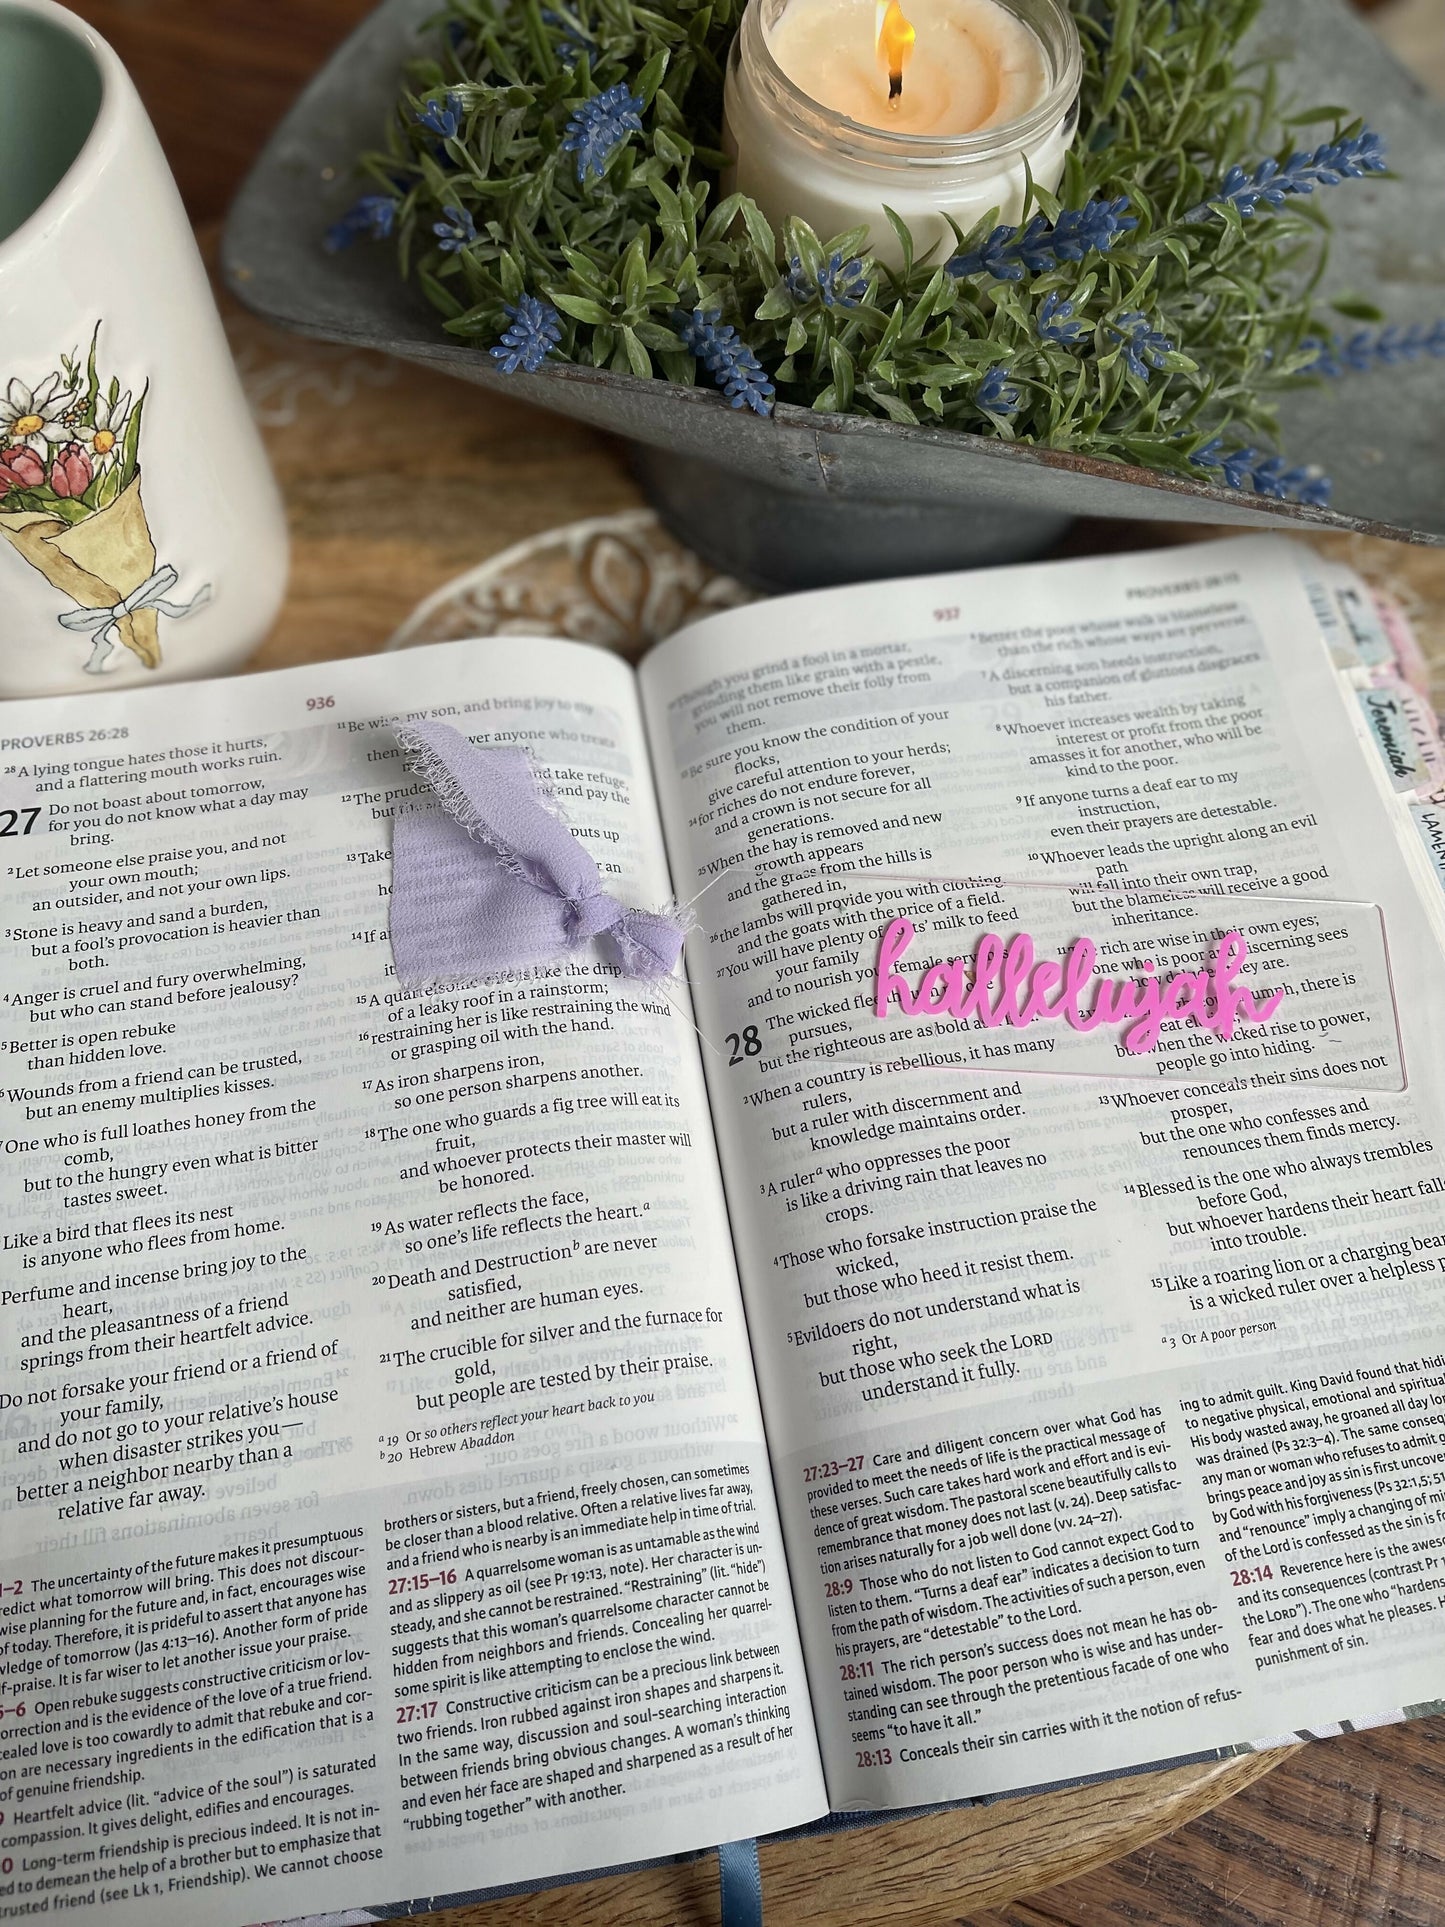 PROVERBS 26:28
936
28 A lying tongue hates those it hurts,
and a flattering mouth works ruin.
27 Do not boast about tomorrow,
for you do not know what a day may
bring.
2 Let someone else praise you, and not
your own mouth;
an outsider, and not your own lips.
3 Stone is heavy and sand a burden,
but a fool's provocation is heavier than
both.
4 Anger is cruel and fury overwhelming,
but who can stand before jealousy?
5 Better is open rebuke
than hidden love.
6 Wounds from a friend can be trusted,
but an enemy multiplies kisses.
7 One who is full loathes honey from the
comb,
but to the hungry even what is bitter
tastes sweet.
Like a bird that flees its nest
is anyone who flees from home.
Perfume and incense bring joy to the
heart,
and the pleasantness of a friend
springs from their heartfelt advice.
Do not forsake your friend or a friend of
your family,
and do not go to your relative's house
when disaster strikes you—
better a neighbor nearby than a
relative far away.
11 Be wise, my son, and bring joy to my
then
wer anyone who treats
12 The pruden
and take refuge,
but the
and pay the
13 Take
puts up
an
14 If a
it
15 A quarrelsome wife is like the drip
of a leaky roof in a rainstorm;
16 restraining her is like restraining the wind
or grasping oil with the hand.
17 As iron sharpens iron,
so one person sharpens another.
18 The one who guards a fig tree will eat its
fruit,
and whoever protects their master will
be honored.
19 As water reflects the face,
so one's life reflects the heart.a
20 Death and Destructionb are never
satisfied,
and neither are human eyes.
21 The crucible for silver and the furnace for
gold,
but people are tested by their praise.
a 19 Or so others reflect your heart back to you
b 20 Hebrew Abaddon
–2 The uncertainty of the future makes it presumptuous
redict what tomorrow will bring. This does not discour-
wise planning for the future and, in fact, encourages wise
of today. Therefore, it is prideful to assert that anyone has
wledge of tomorrow (Jas 4:13–16). Another form of pride
f-praise. It is far wiser to let another issue your praise.
5–6 Open rebuke suggests constructive criticism or lov-
orrection and is the evidence of the love of a true friend.
cealed love is too cowardly to admit that rebuke and cor-
on are necessary ingredients in the edification that is a
of genuine friendship.
9 Heartfelt advice (lit. "advice of the soul") is saturated
compassion. It gives delight, edifies and encourages.
0 Long-term friendship is precious indeed. It is not in-
ed to demean the help of a brother but to emphasize that
trusted friend (see Lk 1, Friendship). We cannot choose
brothers or sisters, but a friend, freely chosen, can sometimes
be closer than a blood relative. Often a relative lives far away,
and a friend who is nearby is an immediate help in time of trial.
27:15–16 A quarrelsome woman is as untamable as the wind
and as slippery as oil (see Pr 19:13, note). Her character is un-
steady, and she cannot be restrained. "Restraining" (lit. "hide")
suggests that this woman's quarrelsome character cannot be
hidden from neighbors and friends. Concealing her quarrel-
some spirit is like attempting to enclose the wind.
27:17 Constructive criticism can be a precious link between
two friends. Iron rubbed against iron shapes and sharpens it.
In the same way, discussion and soul-searching interaction
between friends bring obvious changes. A woman's thinking
and even her face are shaped and sharpened as a result of her
"rubbing together" with another.
937
PROVERBS 28:15
Though you grind a fool in a mortar,
grinding them like grain with a pestle,
you will not remove their folly from
them.
Be sure you know the condition of your
flocks,
give careful attention to your herds;
24 for riches do not endure forever,
and a crown is not secure for all
generations.
25 When the hay is removed and new
growth appears
and the grass from the hills is
gathered in,
26 the lambs will provide you with clothing,
and the goats with the price of a field.
27 You will have plenty of goats' milk to feed
your family
and to nourish your female servants.
28 The wicked flee though no one
pursues,
but the righteous are as bold as a lion.
2 When a country is rebellious, it has many
rulers,
but a ruler with discernment and
knowledge maintains order.
3 A rulera who oppresses the poor
is like a driving rain that leaves no
crops.
4 Those who forsake instruction praise the
wicked,
but those who heed it resist them.
5 Evildoers do not understand what is
right,
but those who seek the LORD
understand it fully.
6 Better the poor whose walk is blameless
than the rich whose ways are perverse.
7 A discerning son heeds instruction,
but a companion of gluttons disgraces
his father.
8 Whoever increases wealth by taking
interest or profit from the poor
amasses it for another, who will be
kind to the poor.
9 If anyone turns a deaf ear to my
instruction,
even their prayers are detestable.
10 Whoever leads the upright along an evil
path
will fall into their own trap,
but the blameless will receive a good
inheritance.
11 rich are wise in their own eyes;
one who is poor and discerning sees
how deluded they are.
umph, there is
eat el
but when the wicked rise to power,
people go into hiding.
13 Whoever conceals their sins does not
prosper,
but the one who confesses and
renounces them finds mercy.
14 Blessed is the one who always trembles
before God,
but whoever hardens their heart fall
into trouble.
15 Like a roaring lion or a charging bear
is a wicked ruler over a helpless p
a 3 Or A poor person
hallelujah
27:23–27 Care and diligent concern over what God has
provided to meet the needs of life is the practical message of
these verses. Such care takes hard work and effort and is evi-
dence of great wisdom. The pastoral scene beautifully calls to
remembrance that money does not last (v. 24). Deep satisfac-
tion arises naturally for a job well done (vv. 24–27).
28:9 Those who do not listen to God cannot expect God to
listen to them. "Turns a deaf ear" indicates a decision to turn
from the path of wisdom. The activities of such a person, even
his prayers, are "detestable" to the Lord.
28:11 The rich person's success does not mean he has ob-
tained wisdom. The poor person who is wise and has under-
standing can see through the pretentious facade of one who
seems "to have it all."
28:13 Conceals their sin carries with it the notion of refus-
ing to admit guilt. King David found that hidi
to negative physical, emotional and spiritual
His body wasted away, he groaned all day lo
was drained (Ps 32:3–4). The same conseq
any man or woman who refuses to admit g
brings peace and joy as sin is first uncover
by God with his forgiveness (Ps 32:1,5; 51
and "renounce" imply a changing of mi
of the Lord is confessed as the sin is fo
28:14 Reverence here is the awes
and its consequences (contrast Pr 1
the LORD"). The one who "hardens
fear and does what he pleases. H
punishment of sin.
Jeremiah
LAMENT